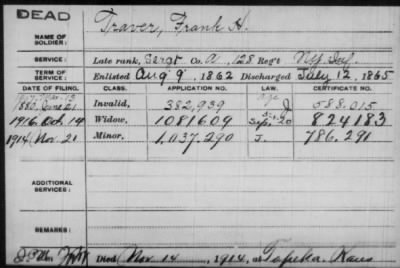 DEAD
NAME OF SOLDIER: Traver, Frank H.
SERVICE: Late rank, Sergt Co. A, 128 Reg't NY Inf.
TERM OF SERVICE: Enlisted Aug 9, 1862 Discharged July 12, 1865
DATE OF FILING. CLASS. APPLICATION NO. LAW. CERTIFICATE NO.
1880, June 21 Invalid, 382,939 J 588,015
1916 Oct. 14 Widow, 1081609 Sept. 20 824183
1914 Nov. 21 Minor, 1,037,290 J. 786,291
ADDITIONAL SERVICES:
REMARKS:
Died Nov. 14, 1914, at Topeka, Kans